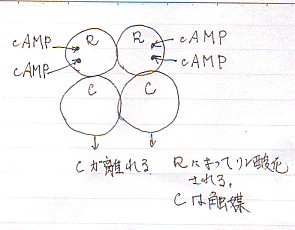 cAMP R R cAMP
cAMP cAMP
C C
Cが離れる Rによってリン酸化
される。
Cは触媒